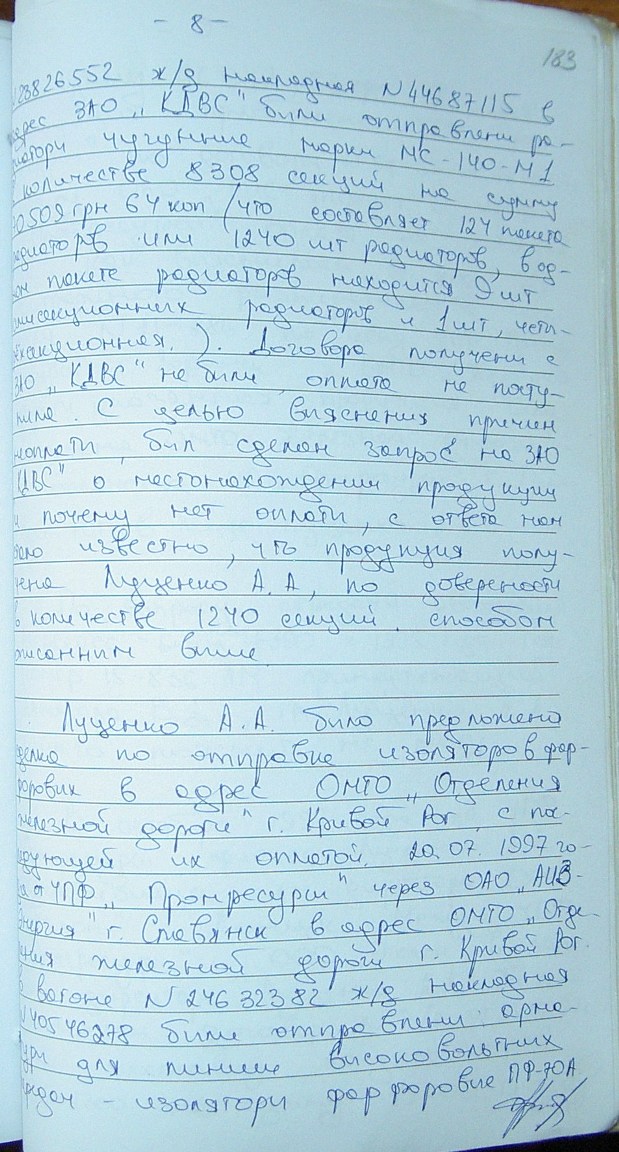 - 8 -
183
23826552 ж/д накладная N 44687115 в
адрес ЗАО „КДВС" били отправлени ра-
диатори чугунные марки МС-140-М1
в количестве 8308 секций на сумму
0509 грн 64 коп /что составляет 124 пакета
радиаторов или 1240 шт радиаторов, в од-
ном пакете радиаторов находится 9 шт
мисекционних радиаторов и 1 шт, чети-
рёхсекционная. ). Договора получени с
ЗАО „КДВС" не били, оплата не посту-
пила. С целью вияснения причин
неоплати, бил сделан запрос на ЗАО
КДВС" о местонахождении продукции
и почему нет оплати, с ответа нам
стало известно, что продукция полу-
чена Луценко А. А, по доверености
в количестве 1240 секций. способом
описанним више
Луценко А.А. било предложено
сделка по отправке изоляторов фар-
форових в адрес ОМТО „Отделения
железной дороги" г. Кривой Рог, с по-
следующей их оплатой. 20.07.1997 го-
да от ЧПФ „Промресурси" через ОАО „АИЗ-
Энергия" г. Славянск в адрес ОМТО „Отде-
ления железной дороги г. Кривой Рог.
В вагоне N 24632382 ж/д накладная
N 40546278 били отправлени: арма-
тури для линии високовольтних
передач - изолятори фарфоровие ПФ-70А